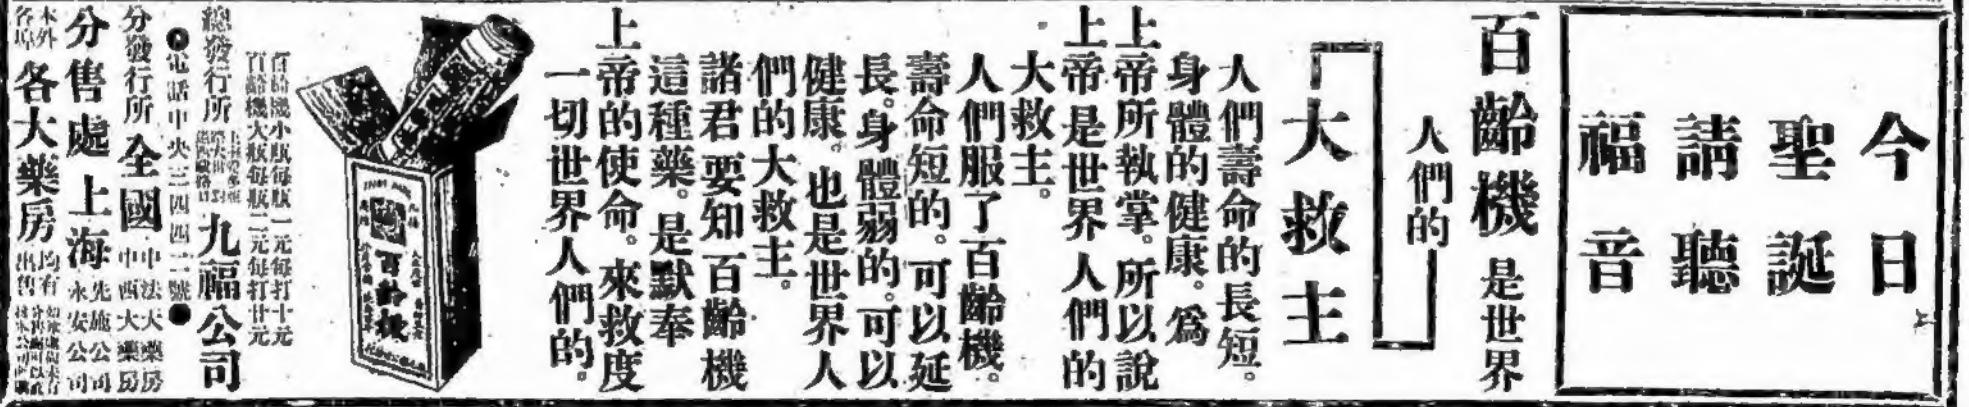 今日
聖誕
請聽
福音
百齡機是世界
人們的
大救主
人們壽命的長短。
身體的健康。爲
上帝所執掌。所以說
上帝是世界人們的
大救主。
人們服了百齡機。
壽命短的。可以延
長。身體弱的。可以
健康。也是世界人
們的大救主。
諸君要知百齡機
這種藥。是默奉
上帝的使命。來救度
一切世界人們的。
百齡機
百齡機小瓶每瓶一元每打十元
百齡機大瓶每瓶二元每打廿元
總發行所
九福公司
電話中央三四四二號
分發行所全國
中法大藥房
中西大藥房
分售處上海
先施公司
永安公司
本外各埠各大藥房均有出售